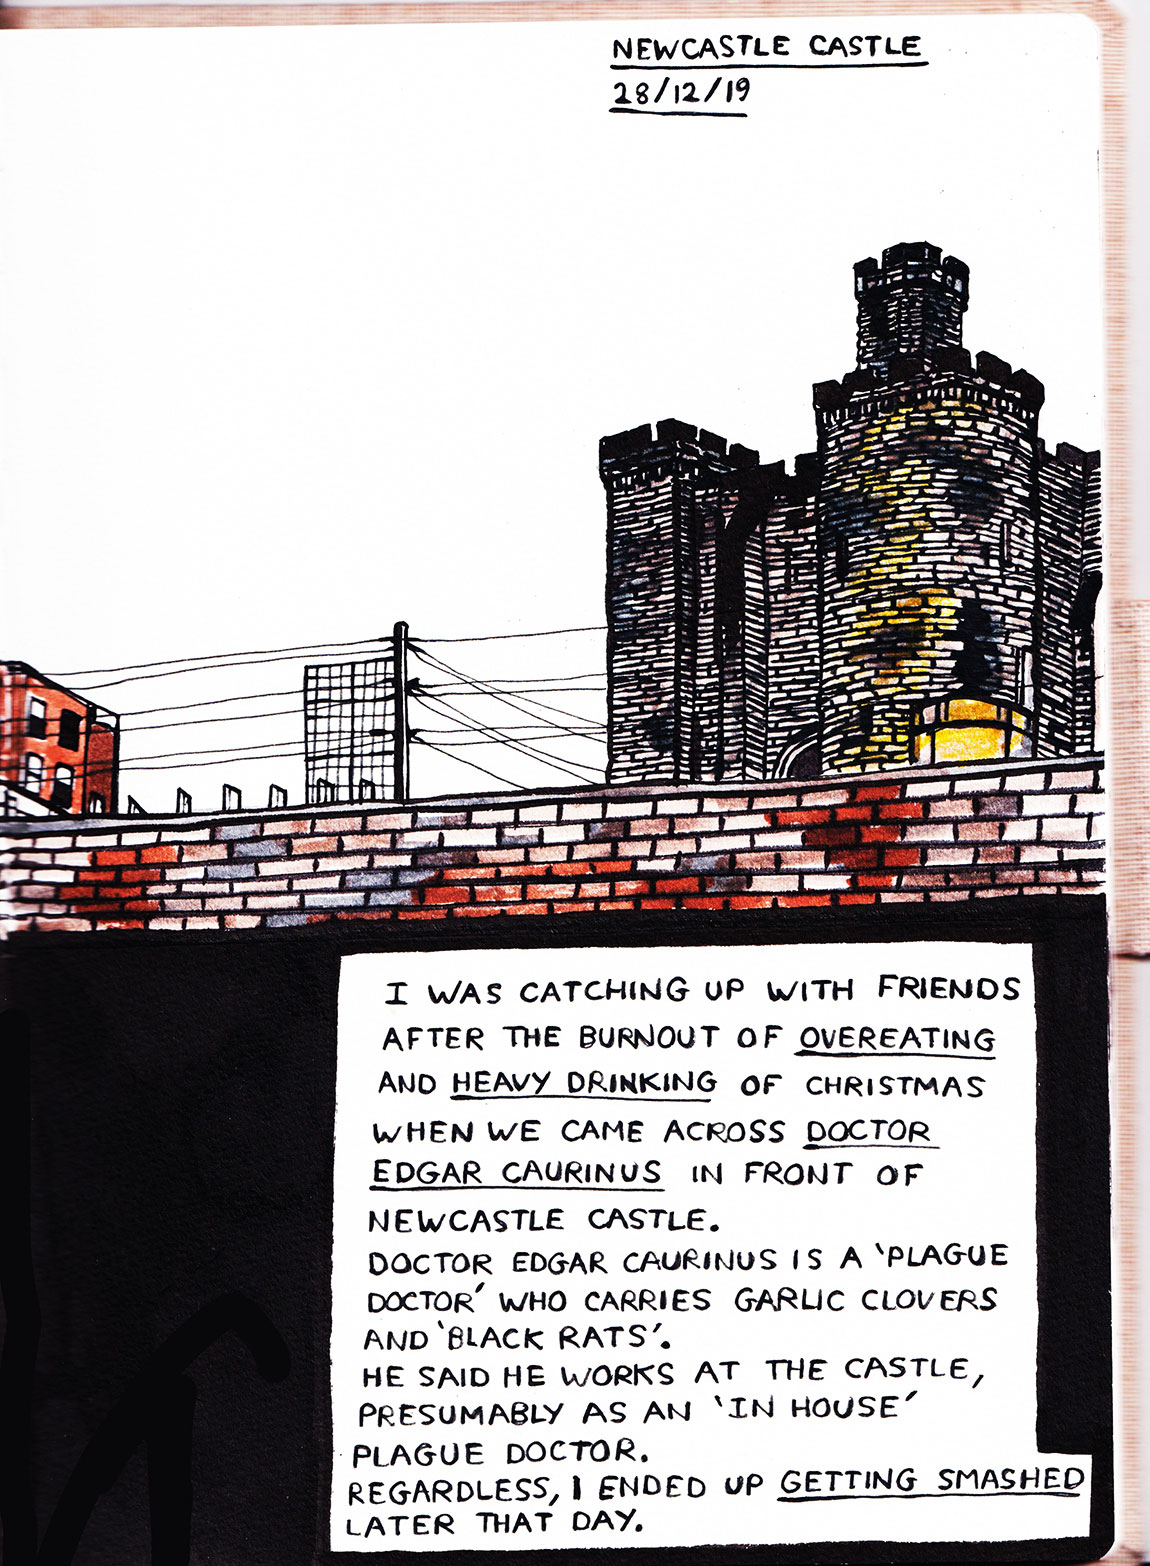 NEWCASTLE CASTLE
28/12/19
I WAS CATCHING UP WITH FRIENDS
AFTER THE BURNOUT OF OVEREATING
AND HEAVY DRINKING OF CHRISTMAS
WHEN WE CAME ACROSS DOCTOR
EDGAR CAURINUS IN FRONT OF
NEWCASTLE CASTLE.
DOCTOR EDGAR CAURINUS IS A 'PLAGUE
DOCTOR' WHO CARRIES GARLIC CLOVERS
AND 'BLACK RATS'.
HE SAID HE WORKS AT THE CASTLE,
PRESUMABLY AS AN 'IN HOUSE'
PLAGUE DOCTOR.
REGARDLESS, I ENDED UP GETTING SMASHED
LATER THAT DAY.